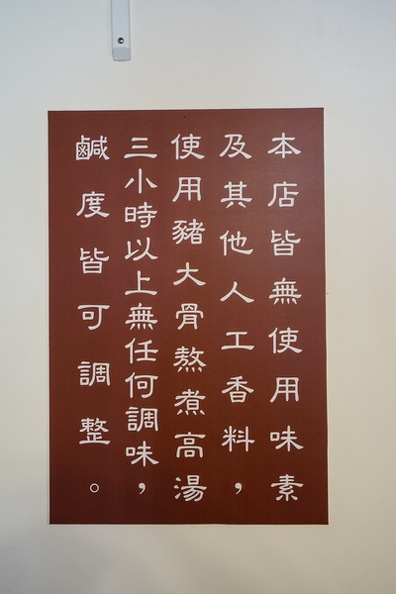 本店皆無使用味素
及其他人工香料，
使用豬大骨熬煮高湯
三小時以上無任何調味，
鹹度皆可調整。